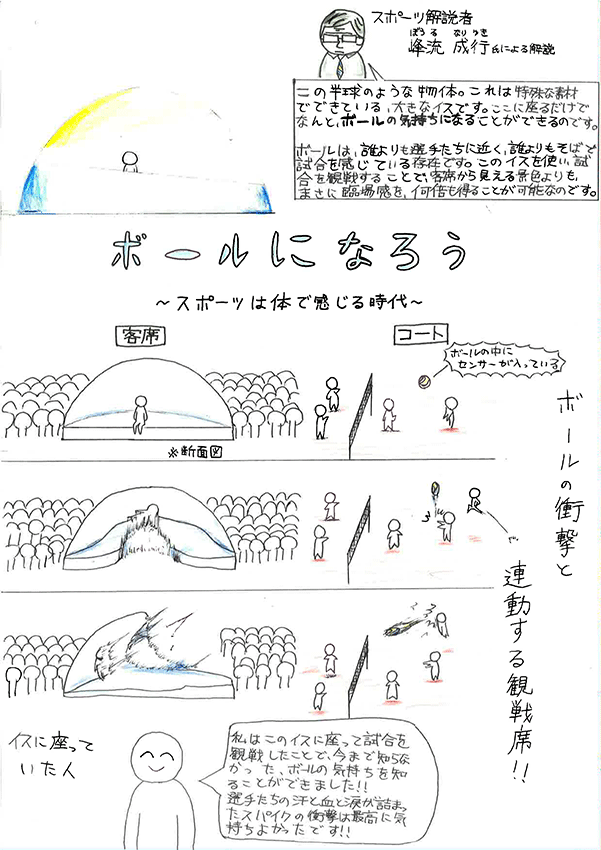 スポーツ解説者
ぼうる なりゆき
峰流 成行氏による解説
この半球のような物体。これは特殊な素材
でできている、大きなイスです。ここに座るだけで
なんと、ボールの気持ちになることができるのです。
ボールは、誰よりも選手たちに近く、誰よりもそばで
試合を感じている存在です。このイスを使い、試
合を観戦することで、客席から見える景色よりも、
まさに臨場感を、何倍も得ることが可能なのです。
ボールになろう
～スポーツは体で感じる時代～
客席
コート
ボールの中に
センサーが入っている
※断面図
ボールの衝撃と
連動する観戦席!!
イスに座って
いた人
私はこのイスに座って試合を
観戦したことで、今まで知らな
かった、ボールの気持ちを知
ることができました!!
選手たちの汗と血と涙が詰まっ
たスパイクの衝撃は最高に気
持ちよかったです!!